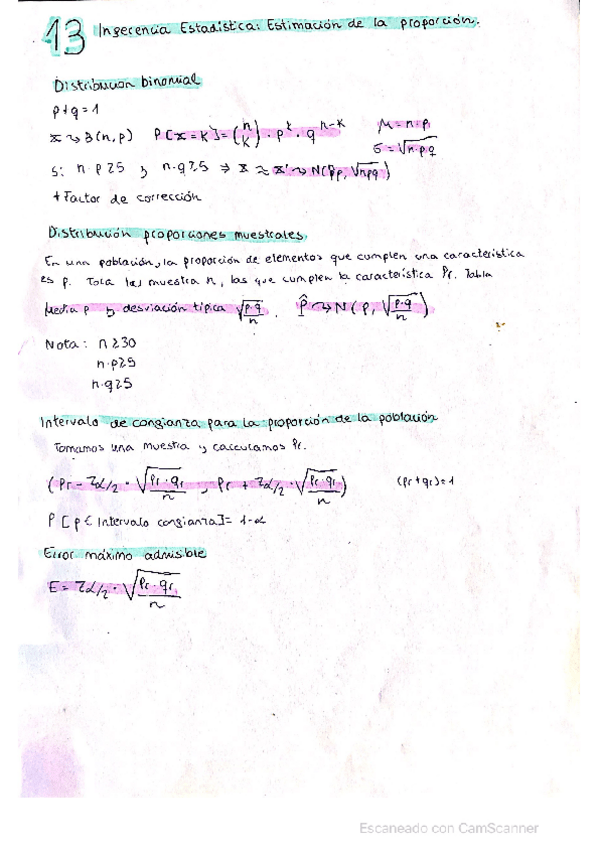 13 Inferencia Estadística: Estimación de la proporción.
Distribución binomial
p+q=1
x ↝ B(n,p) P[x=k]=(n k)·p^k·q^(n-k) μ=n·p
σ=√(n·p·q)
Si n·p≥5 y n·q≥5 ⇒ x ≈ x' ↝ N(np, √npq)
+ Factor de corrección
Distribución proporciones muestrales
En una población, la proporción de elementos que cumplen una característica
es p. Toda las muestra n, las que cumplen la característica Pr. Tabla
Media p y desviación típica √(p·q/n). p̂ ↝ N(p, √(p·q/n))
Nota: n≥30
n·p≥5
n·q≥5
Intervalo de confianza para la proporción de la población
Tomamos una muestra y calculamos Pr.
(Pr - Zα/2 · √(Pr·qr/n), Pr + Zα/2 · √(Pr·qr/n)) (Pr+qr)=1
P[p ∈ Intervalo confianza]= 1-α
Error máximo admisible
E = Zα/2 · √(Pr·qr/n)
Escaneado con CamScanner